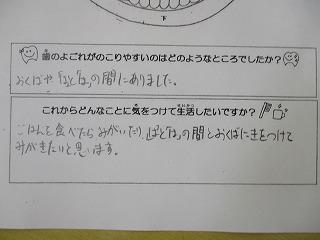 下
歯のよごれがのこりやすいのはどのようなところでしたか?
おくばや「はとは」の間にありました。
これからどんなことに気をつけて生活したいですか?
ごはんを食べたらみがいたり、「はとは」の間とおくばにきをつけて
みがきたいと思います。